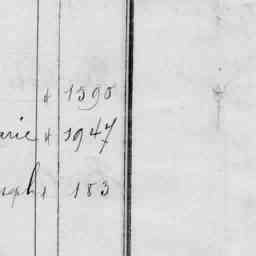 + 1590
arie + 1947
seph + 183